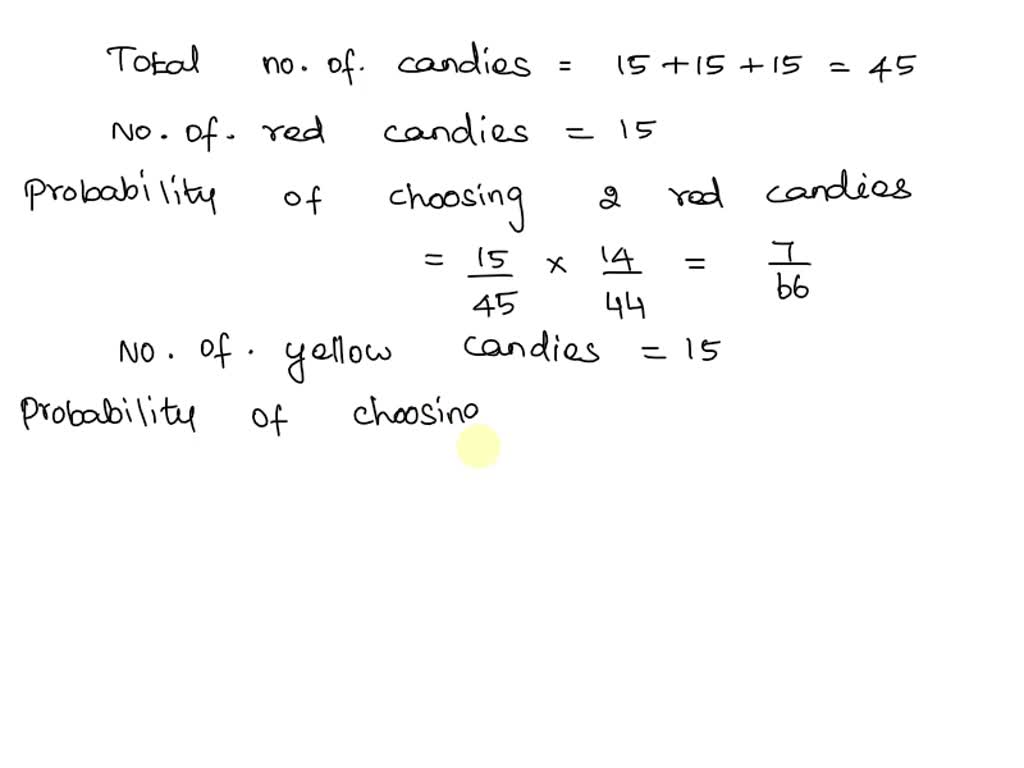 Total no. of. candies = 15 + 15 + 15 = 45
No. of. red candies = 15
Probability of choosing 2 red candies
= 15/45 × 14/44 = 7/66
No. of. yellow candies = 15
Probability of choosing